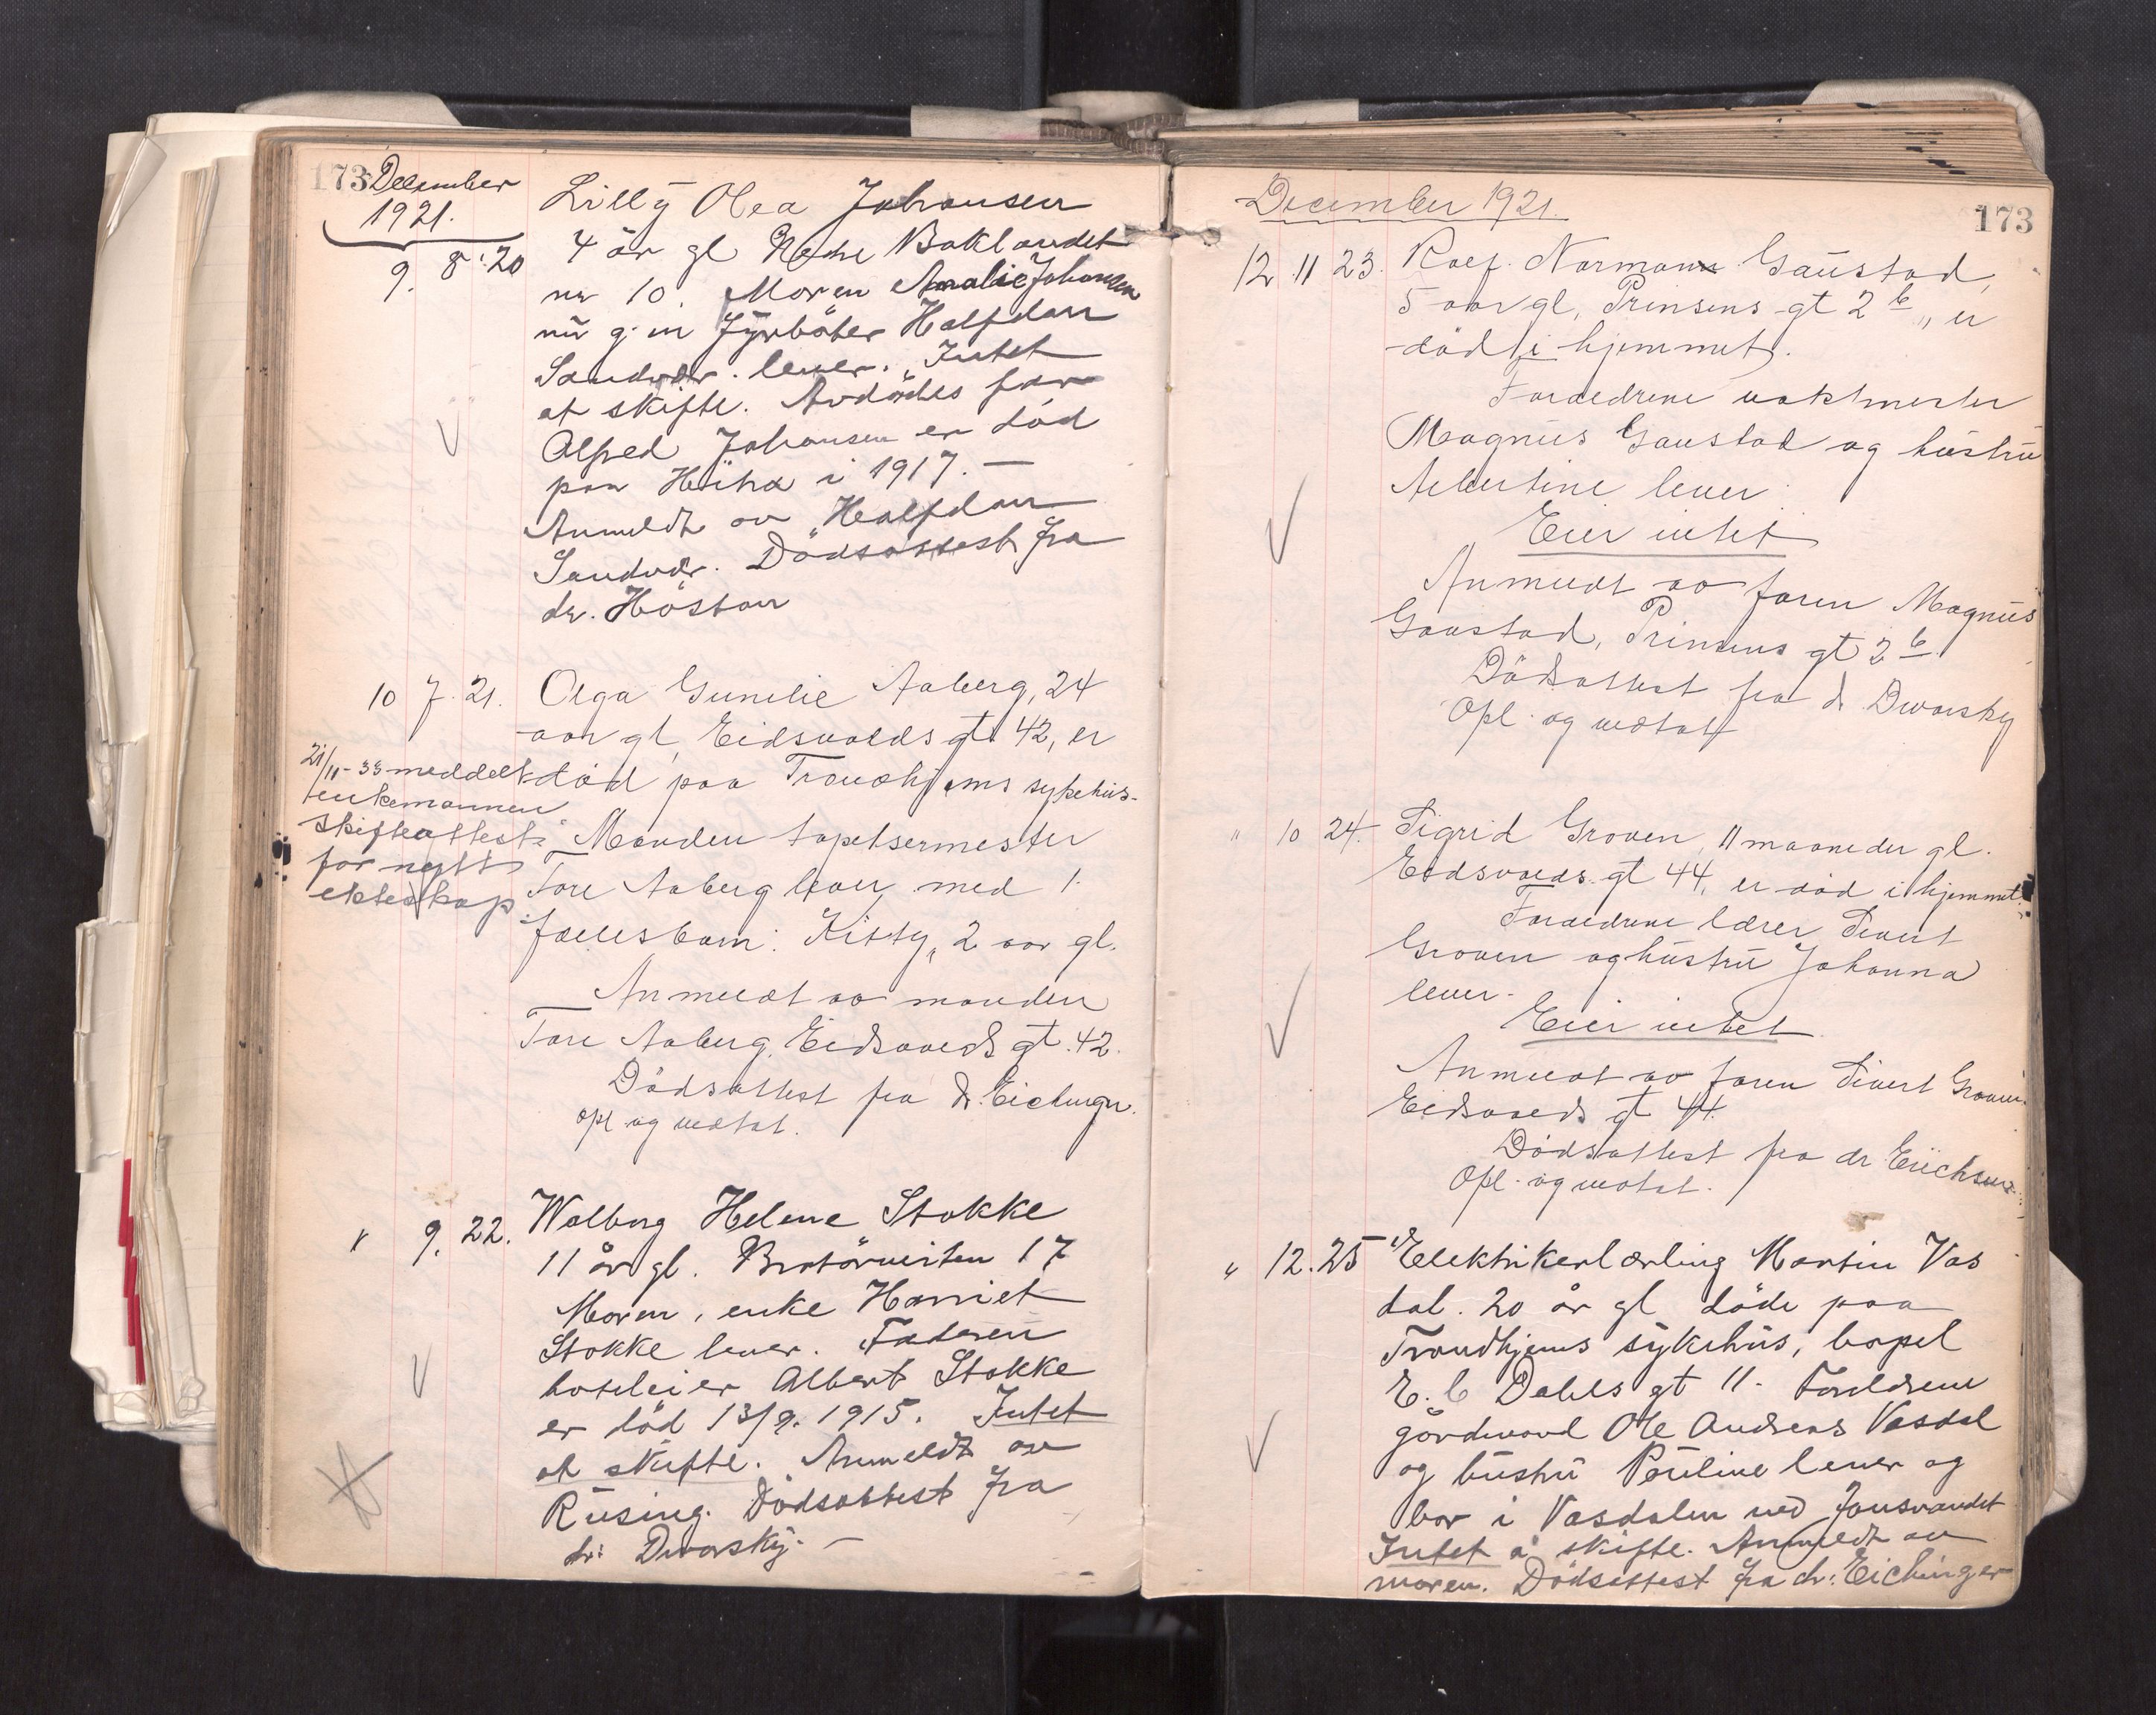 173 December
1921.
9. 8. 20 Lilly Olea Johansen
4 år gl Nedre Baklandet
nr 10. Moren Amalie Johansen
nu g. m fyrböter Halfdan
Sandvær. lever. Intet
at skifte. Avdödes far
Alfred Johansen er död
paa Hitra i 1917. —
Anmeldt av Halfdan
Sandvær. Dödsattest fra
dr. Höstan
10 7. 21. Olga Gunelie Aaberg, 24
aar gl, Eidsvolds gt. 42, er
død paa Trondhjems sykehus.
Manden tapetsermester
Tore Aaberg lever med 1
fællesbarn: Kitty, 2 aar gl.
Anmeldt av manden
Tore Aaberg, Eidsvolds gt. 42.
Dödsattest fra dr. Eichinger.
opl og vedtat.
21/11-33 meddelt
enkemannen
skifteattest
for nytt
ekteskap
" 9. 22. Walborg Helene Stokke
11 år gl. Bratörveiten 17
Moren, enke Harriet
Stokke lever. Faderen
hoteleier Albert Stokke
er död 13/9. 1915. Intet
at skifte. Anmeldt av
Rüsing. Dödsattest fra
dr: Dworsky. —
December 1921.
173
12 11 23. Rolf Norman Gaustad,
5 aar gl, Prinsens gt 2 b, er
död i hjemmet.
Forældrene vaktmester
Magnus Gaustad og hustru
Albertine lever.
Eier intet
Anmeldt av faren Magnus
Gaustad, Prinsens gt 2 b.
Dödsattest fra dr Dworsky
Opl. og vedtat
" 10 24. Sigrid Groven, 11 maaneder gl.
Eidsvolds gt 44, er død i hjemmet.
Forældrene lærer Sivert
Groven og hustru Johanna
lever.
Eier intet
Anmeldt av faren Sivert Groven
Eidsvolds gt 44.
Dödsattest fra dr Erichsen
Opl. og vedtat.
" 12. 25 Elektrikerlærling Martin Vas
dal. 20 år gl döde paa
Trondhjems sykehus, bopel
E. C Dahls gt 11. Foreldrene
gårdmand Ole Andreas Vasdal
og hustru Pauline lever og
bor i Vasdalen ved Jonsvandet
Intet å skifte. Anmeldt av
moren. Dödsattest fra dr: Eichinger